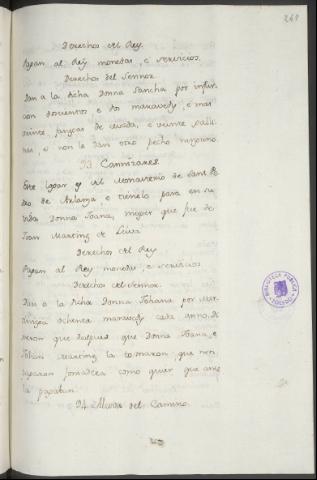 269
Derechos del Rey.
Pagan al Rey monedas, e servicios.
Derechos del Sennor.
Dan a la dicha Donna Sancha por infur-
cion docientos e dos maravedis, e mas
veinte fanegas de cevada, e veinte galli-
nas, e non le dan otro pecho ninguno.
93. Cannizares.
Este logar es del Monasterio de Sant Pe-
dro de Arlanza, e tienelo para en su
vida Donna Joana, muger que fue de
Joan Martinez de Leiva.
Derechos del Rey
Pagan al Rey monedas, e servicios
Derechos del Sennor.
Dan a la dicha Donna Johana por Mar-
tiniega ochenta maravedis cada anno, di-
xeron que despues que Donna Joana, e
Johan Martinez la tomaron, que non
pagaron fonsadera como quier que ante
la pagaban.
94. Mazar del Camino.
BIBLIOTECA PUBLICA
TOLEDO